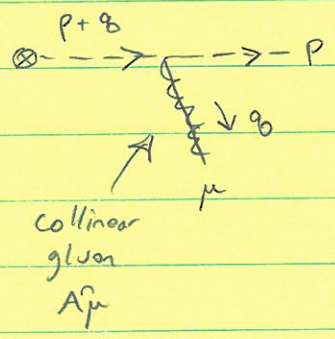 p + q
p
q
μ
collinear
gluon
A^n_μ